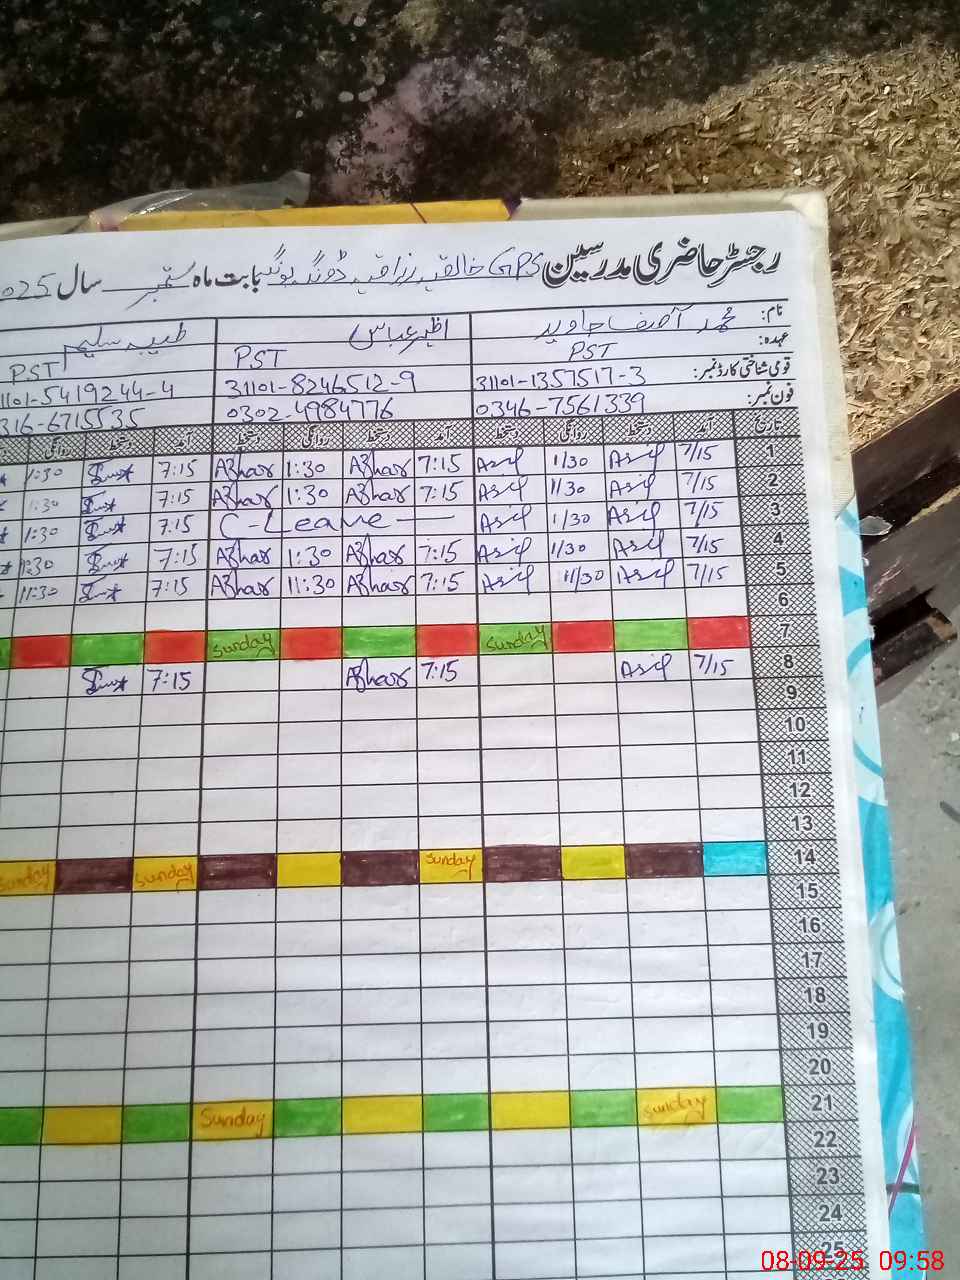 رجسٹر حاضری مدرسین GPS خالقیہ رزاقیہ ڈونگہ بونگہ بابت ماہ ستمبر سال 2025
نام: محمد آصف جاوید اظہر عباس طیب سلیم
عہدہ: PST PST PST
قومی شناختی کارڈ نمبر: 31101-1357517-3 31101-8246512-9 1101-5419244-4
فون نمبر: 0346-7561339 0302-4984776 316-6715535
تاریخ آمد دستخط روانگی دستخط آمد دستخط روانگی دستخط آمد دستخط روانگی
1 7/15 Asif 1/30 Asif 7:15 Azhar 1:30 Azhar 7:15 1:30
2 7/15 Asif 1/30 Asif 7:15 Azhar 1:30 Azhar 7:15 1:30
3 7/15 Asif 1/30 Asif C-Leave 7:15 1:30
4 7/15 Asif 1/30 Asif 7:15 Azhar 1:30 Azhar 7:15 1:30
5 7/15 Asif 11/30 Asif 7:15 Azhar 11:30 Azhar 7:15 11:30
6
7 Sunday Sunday
8 7/15 Asif 7:15 Azhar 7:15
9
10
11
12
13
14 Sunday Sunday Sunday
15
16
17
18
19
20
21 Sunday Sunday
22
23
24
25
08-09-25 09:58